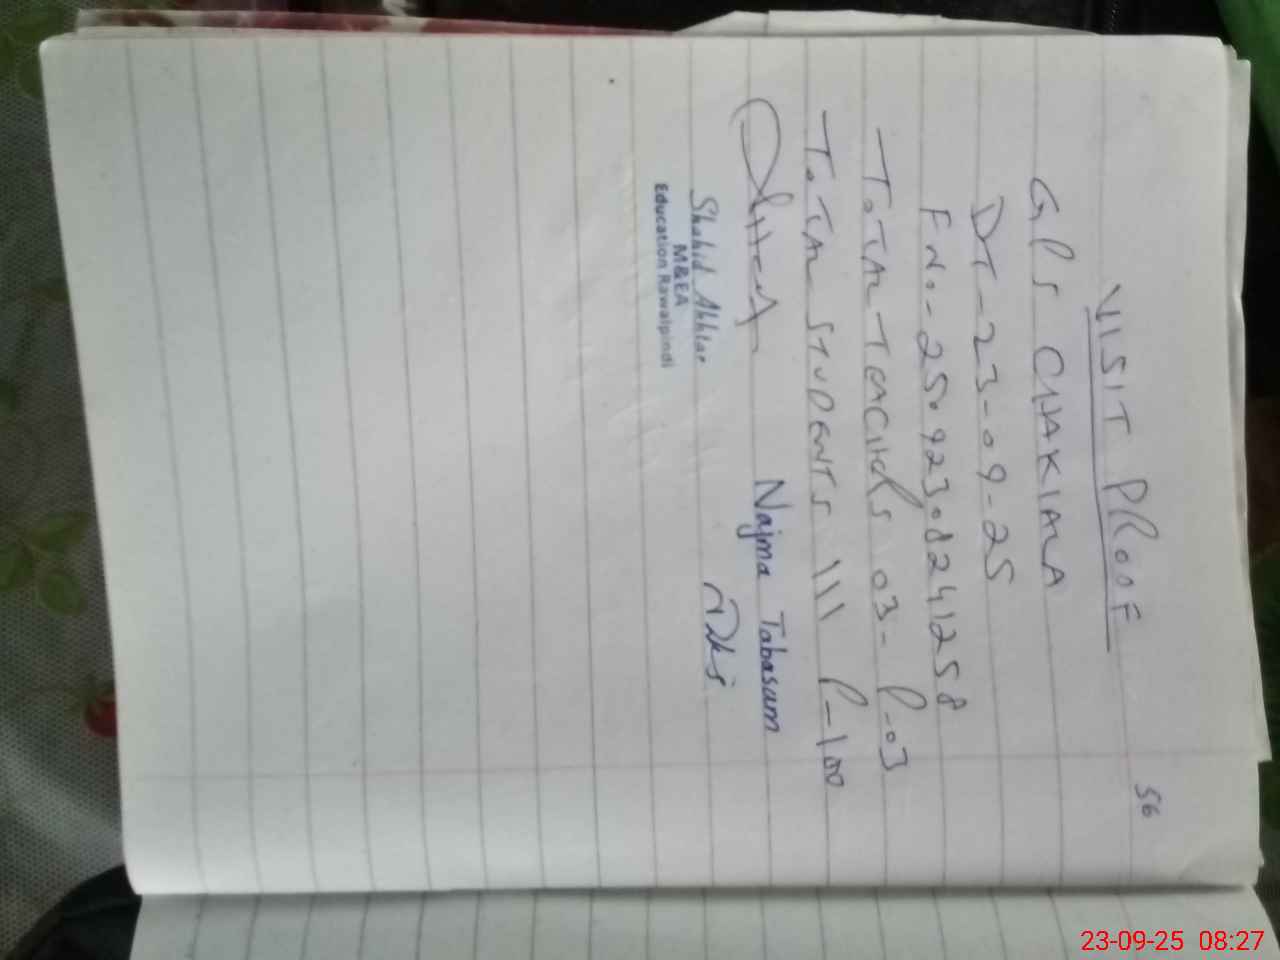 56
VISIT PROOF
GPS CHAKIALA
DT-23-09-25
FN.-25092308241258
TOTAL TEACHERS 03- P-03
TOTAL STUDENTS 111 P-100
Najma Tabasum
Shahid Akhtar
M&EA
Education Rawalpindi
23-09-25 08:27